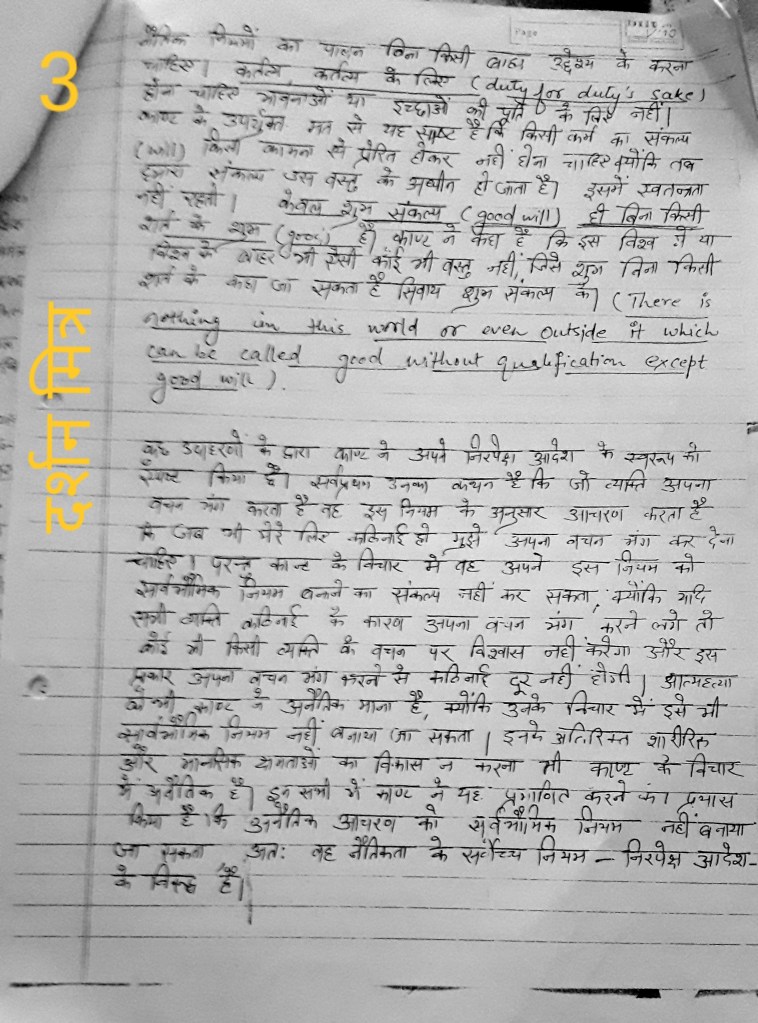 3
दर्शन मित्र
PAGE
नैतिक नियमों का पालन बिना किसी बाह्य उद्देश्य के करना
चाहिए। कर्तव्य, कर्तव्य के लिए (duty for duty's sake)
होना चाहिए भावनाओं या इच्छाओं की पूर्ति के लिए नहीं।
काण्ट के उपर्युक्त मत से यह स्पष्ट है कि किसी कर्म का संकल्प
(will) किसी कामना से प्रेरित होकर नहीं होना चाहिए क्योंकि तब
हमारा संकल्प उस वस्तु के अधीन हो जाता है। इसमें स्वतन्त्रता
नहीं रहती। केवल शुभ संकल्प (good will) ही बिना किसी
शर्त के शुभ (good) है। काण्ट ने कहा है कि इस विश्व में या
विश्व के बाहर भी ऐसी कोई भी वस्तु नहीं, जिसे शुभ बिना किसी
शर्त के कहा जा सकता है सिवाय शुभ संकल्प के। (There is
nothing in this world or even outside it which
can be called good without qualification except
good will).
कुछ उदाहरणों के द्वारा काण्ट ने अपने निरपेक्ष आदेश के स्वरूप को
स्पष्ट किया है। सर्वप्रथम उनका कथन है कि जो व्यक्ति अपना
वचन भंग करता है वह इस नियम के अनुसार आचरण करता है
कि जब भी मेरे लिए कठिनाई हो मुझे अपना वचन भंग कर देना
चाहिए। परन्तु कान्ट के विचार में वह अपने इस नियम को
सार्वभौमिक नियम बनाने का संकल्प नहीं कर सकता, क्योंकि यदि
सभी व्यक्ति कठिनाई के कारण अपना वचन भंग करने लगे तो
कोई भी किसी व्यक्ति के वचन पर विश्वास नहीं करेगा और इस
प्रकार अपना वचन भंग करने से कठिनाई दूर नहीं होगी। आत्महत्या
को भी काण्ट ने अनैतिक माना है, क्योंकि उनके विचार में इसे भी
सार्वभौमिक नियम नहीं बनाया जा सकता। इनके अतिरिक्त शारीरिक
और मानसिक क्षमताओं का विकास न करना भी काण्ट के विचार
में अनैतिक है। इन सभी में काण्ट ने यह प्रमाणित करने का प्रयास
किया है कि अनैतिक आचरण को सर्वभौमिक नियम नहीं बनाया
जा सकता अतः वह नैतिकता के सर्वोच्च नियम – निरपेक्ष आदेश-
के विरूद्ध है।